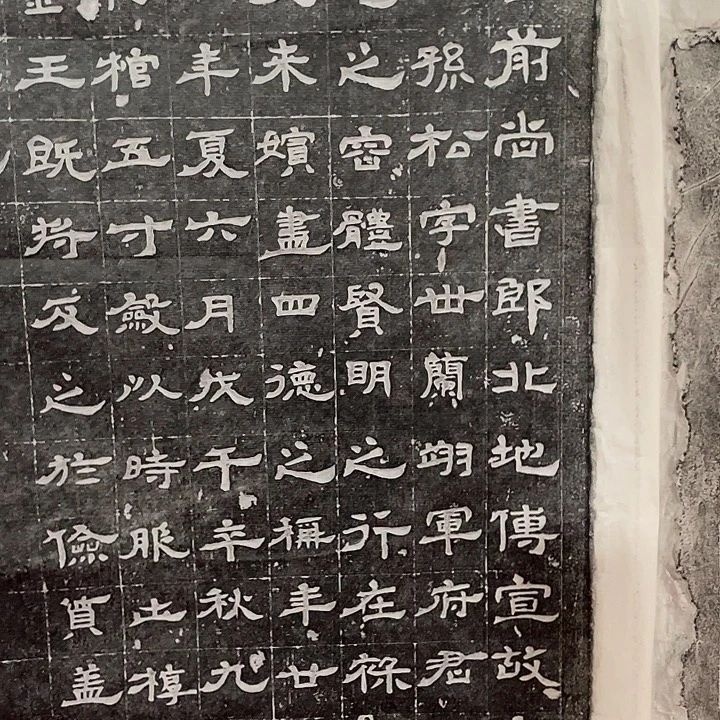 前尚書郎北地傅宣故
孫松字世蘭翊軍府君
之容體賢明之行在
来嬪盡四德之稱年廿
年夏六月戊午卒秋九
棺五寸斂以時服止椁
王既将反之於儉質盖